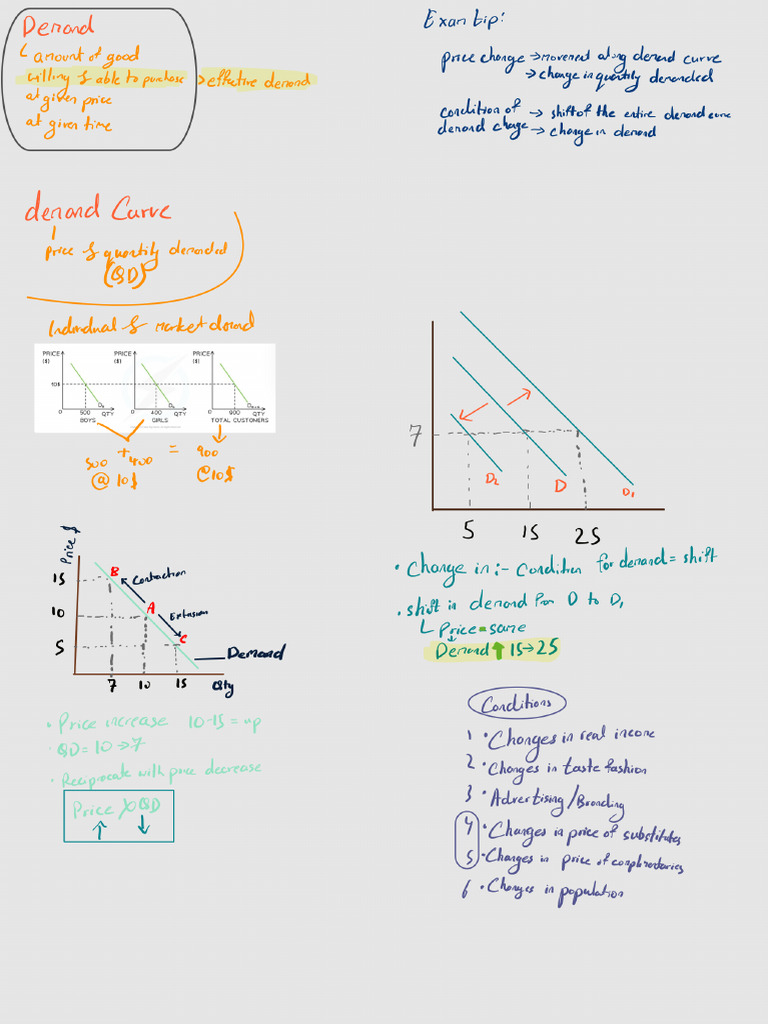 Demand
amount of good
willing & able to purchase > effective demand
at given price
at given time
Exam tip:
price change → movement along demand curve
→ change in quantity demanded
condition of → shift of the entire demand curve
demand change → change in demand
demand Curve
price & quantity demanded
(QD)
Individual & market demand
PRICE ($) PRICE ($) PRICE ($)
10$
0 500 QTY 0 400 QTY 0 900 QTY
BOYS GIRLS TOTAL CUSTOMERS
500 + 400 = 900
@ 10$ @10$
7
D2 D D1
5 15 25
• Change in :- Condition for demand = shift
• shift in demand from D to D1
Price = same
Demand ↑ 15→25
Price $
15 B Contraction
10 A Extension
5 C
Demand
7 10 15 Qty
• Price increase 10-15 = up
• QD = 10 → 7
• Reciprocate with price decrease
Price QD
↑ ↓
Conditions
1 • Changes in real income
2 • Changes in taste fashion
3 • Advertising/Branding
4 • Changes in price of substitutes
5 • Changes in price of complimentaries
6 • Changes in population